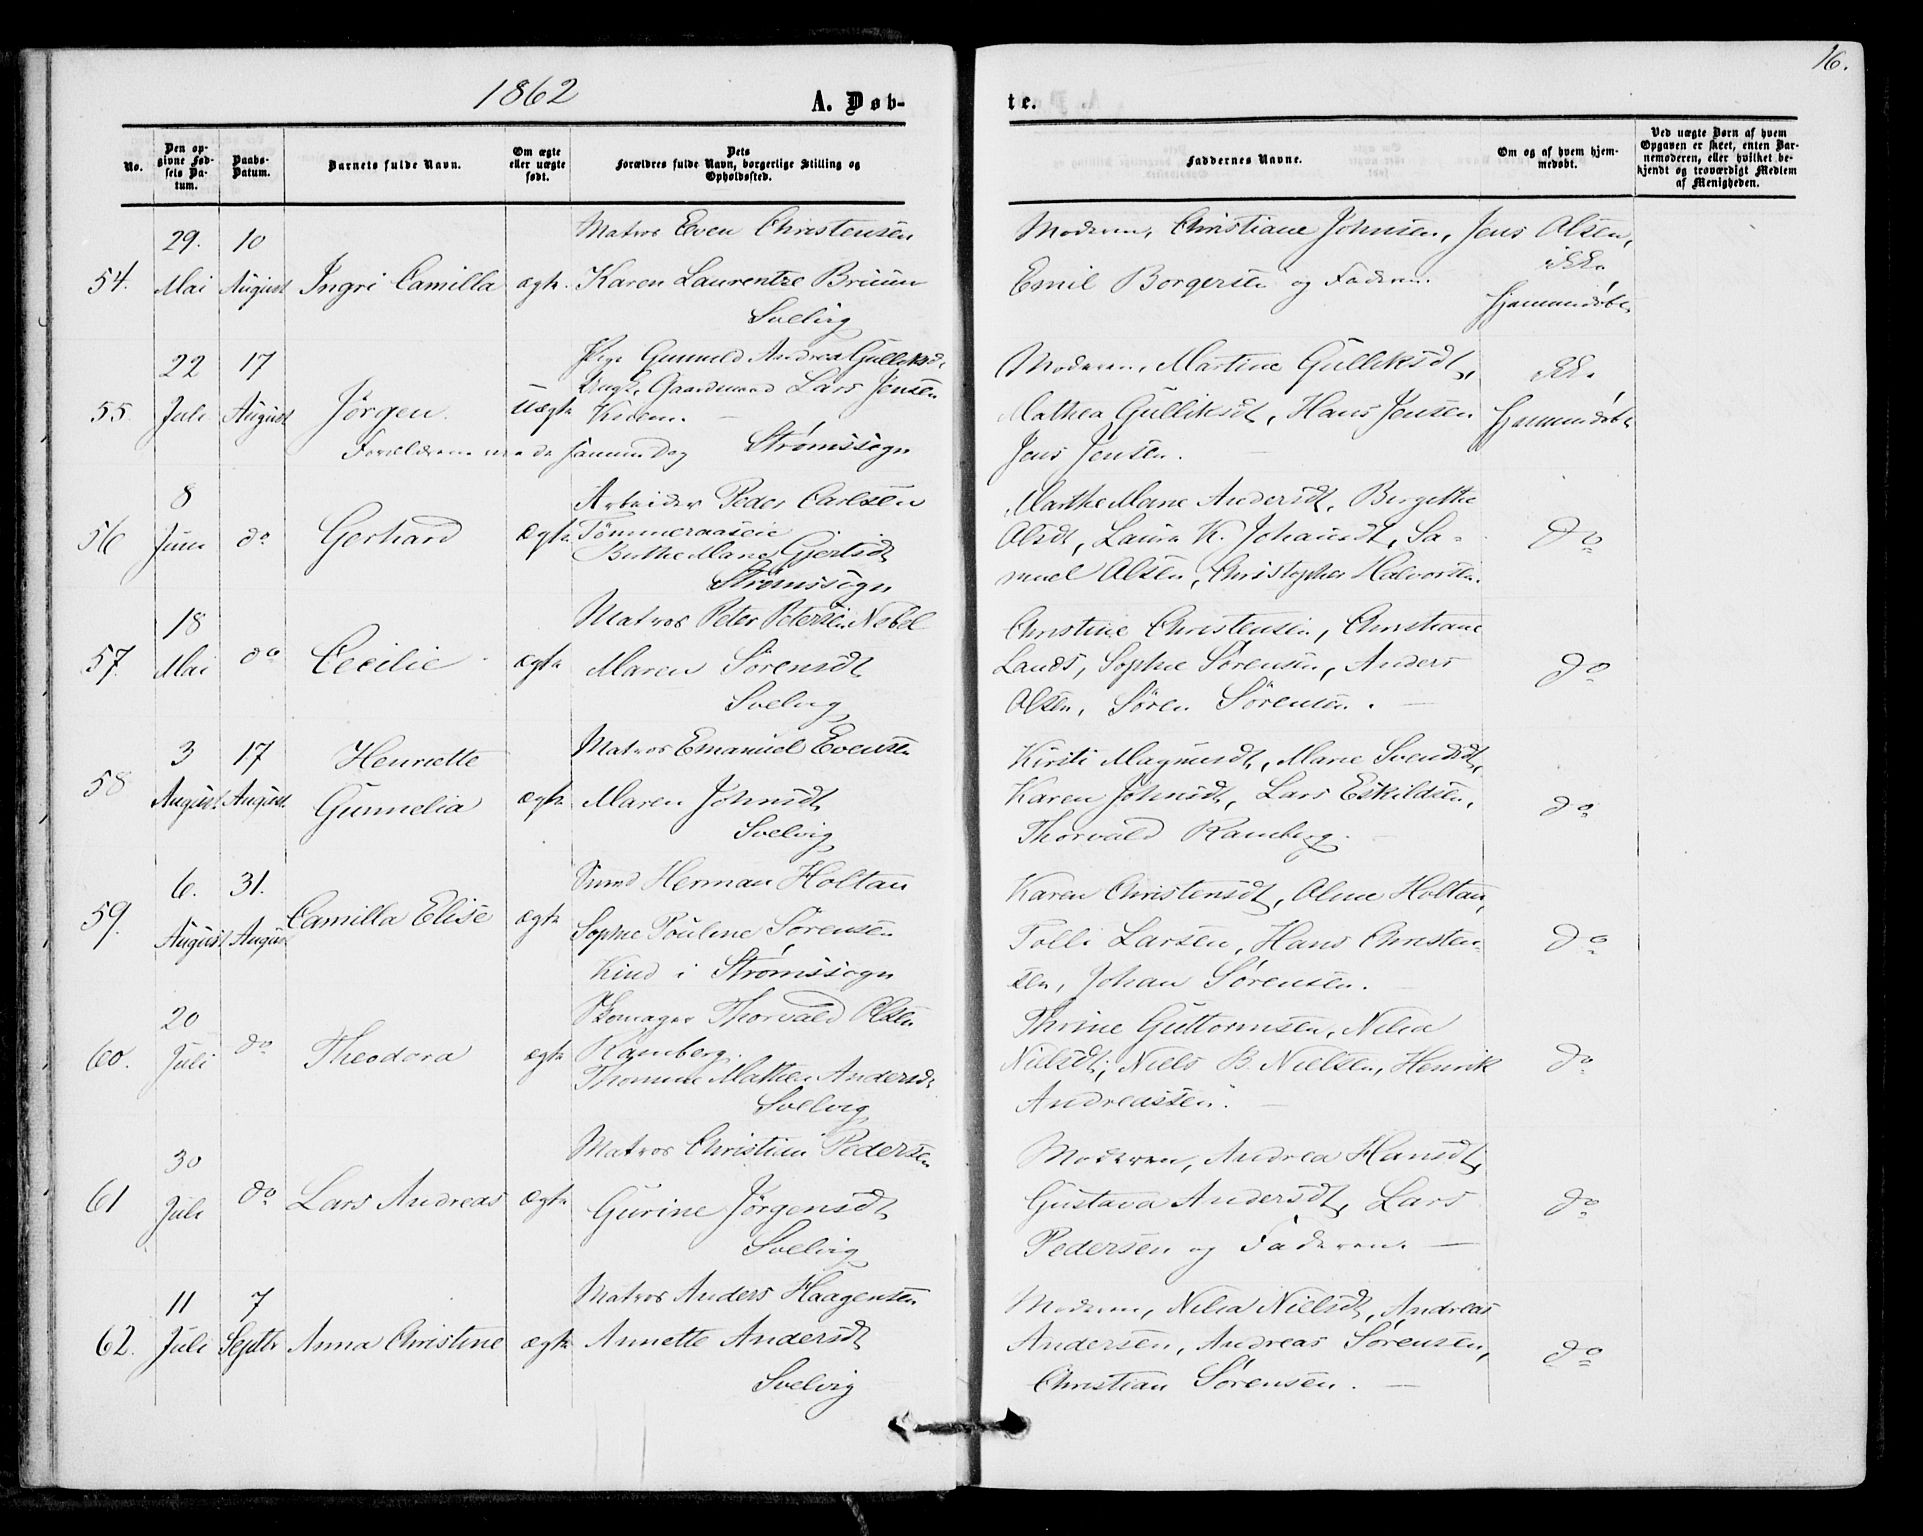 16.
1862
A. Døb-
te.
No.
Den op-
givne Fød-
sels Da-
tum.
Daabs-
Datum.
Barnets fulde Navn.
Om ægte
eller uægte
født.
Dets
Forældres fulde Navn, borgerlige Stilling og
Opholdssted.
Faddernes Navne.
Om og af hvem hjem-
medøbt.
Ved uægte Børn af hvem
Opgaven er skeet, enten Bar-
nemoderen, eller hvilket be-
kjendt og troværdigt Medlem
af Menigheden.
54.
29.
Mai
10
August
Ingri Camilla
ægte
Matros Even Christensen
Karen Laurentze Bruun
Svelvig
Moderen, Christiane Johnsen, Jens Olsen,
Emil Borgersen og Faderen.
ikke
hjemmedøbt
55.
22
Juli
17
August
Jørgen
uægte
Forældrene
samme Dag
Pige Gunnild Andrea Gulliksdt.
Ungk. Gaardmand Lars Jensen
Knem.
Strømssogn
Moderen, Martine Gulliksdt,
Mathea Gulliksdt, Hans Jensen
Jens Jensen.
ikke
hjemmedøbt
56
8
Juni
do
Gerhard
ægte
Arbeider Peder Carlsen
Tømmeraaseie
Berthe Marie Gjertsdt
Strømssogn
Marthe Marie Andersdt, Birgitthe
Olsdt, Laura K. Johansdt, Sa-
muel Olsen, Christopher Halvorsen.
do
57.
18
Mai
do
Cecilie
ægte
Matros Peter Petersen Nebel
Maren Sørensdt
Svelvig
Christine Christensen, Christiane
Lands, Sophie Sørensen, Anders
Olsen, Søren Sørensen.
do
58
3
August.
17
August.
Henriette
Gunnelia
ægte
Matros Emanuel Evensen
Maren Johnsdt
Svelvig
Kirsti Magnusdt, Marie Svendsdt,
Karen Johnsdt, Lars Eskildsen,
Thorvald Ramberg.
do
59.
6.
August
31.
August
Camilla Elise
ægte
Herman Holtan
Sophie Pouline Sørensen
Kind i Strømssogn
Karen Christensdt, Oline Holtan,
Tolli Larsen, Hans Christen-
sen, Johan Sørensen.
do
60.
20
Juli
do
Theodora
ægte
Skomager Thorvald Olsen
Ramberg.
Thomine Mathea Andersdt
Svelvig
Thrine Guttormsen, Nilia
Nielsdt, Niels B. Nielsen, Henrik
Andreassen.
do
61
30
Juli
do
Lars Andreas
ægte
Matros Christian Pedersen
Gurine Jørgensdt
Svelvig
Moderen, Andrea Hansdt,
Gustava Andersdt, Lars
Pedersen og Faderen.
do
62.
11
Juli
7
Septbr
Anna Christine
ægte
Matros Anders Haagensen
Annette Andersdt
Svelvig
Moderen, Nilia Nielsdt, Andreas
Andersen, Andreas Sørensen,
Christian Sørensen.
do